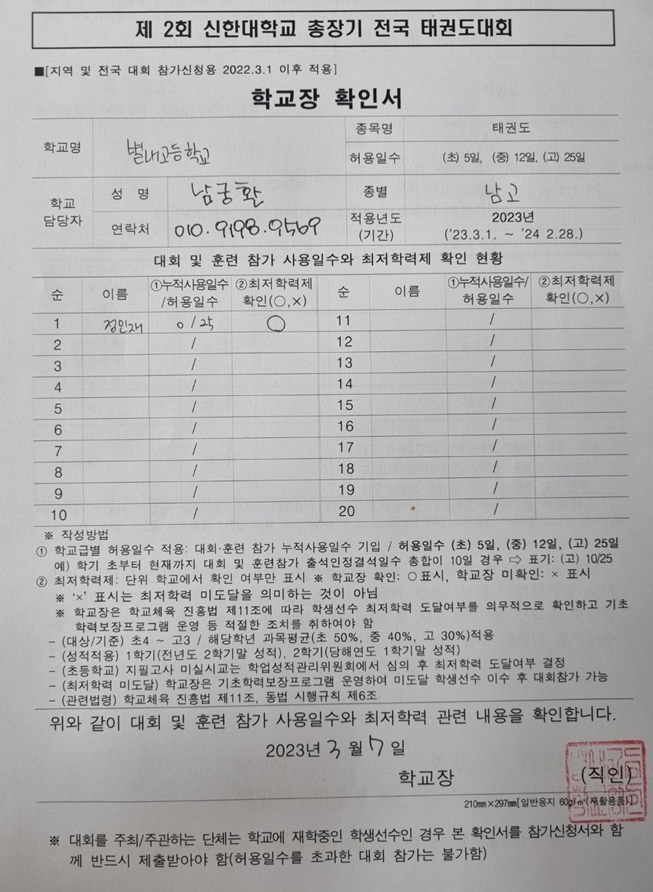 제 2회 신한대학교 총장기 전국 태권도대회
■[지역 및 전국 대회 참가신청용 2022.3.1 이후 적용]
학교장 확인서
학교명 별내고등학교 종목명 태권도
허용일수 (초) 5일, (중) 12일, (고) 25일
학교 담당자 성 명 남궁환 종별 남고
연락처 010.9198.9569 적용년도 (기간) 2023년 ('23.3.1. ~ '24 2.28.)
대회 및 훈련 참가 사용일수와 최저학력제 확인 현황
순 이름 ①누적사용일수/허용일수 ②최저학력제 확인(○,×) 순 이름 ①누적사용일수/허용일수 ②최저학력제 확인(○,×)
1 정인재 0/25 ○ 11 /
2 / 12 /
3 / 13 /
4 / 14 /
5 / 15 /
6 / 16 /
7 / 17 /
8 / 18 /
9 / 19 /
10 / 20 /
※ 작성방법
① 학교급별 허용일수 적용: 대회·훈련 참가 누적사용일수 기입 / 허용일수 (초) 5일, (중) 12일, (고) 25일
예) 학기 초부터 현재까지 대회 및 훈련참가 출석인정결석일수 총합이 10일 경우 ⇨ 표기: (고) 10/25
② 최저학력제: 단위 학교에서 확인 여부만 표시 ※ 학교장 확인: ○표시, 학교장 미확인: × 표시
※ '×' 표시는 최저학력 미도달을 의미하는 것이 아님
※ 학교장은 학교체육 진흥법 제11조에 따라 학생선수 최저학력 도달여부를 의무적으로 확인하고 기초
학력보장프로그램 운영 등 적절한 조치를 취하여야 함
- (대상/기준) 초4 ~ 고3 / 해당학년 과목평균(초 50%, 중 40%, 고 30%)적용
- (성적적용) 1학기(전년도 2학기말 성적), 2학기(당해연도 1학기말 성적)
- (초등학교) 지필고사 미실시교는 학업성적관리위원회에서 심의 후 최저학력 도달여부 결정
- (최저학력 미도달) 학교장은 기초학력보장프로그램 운영하여 미도달 학생선수 이수 후 대회참가 가능
- (관련법령) 학교체육 진흥법 제11조, 동법 시행규칙 제6조
위와 같이 대회 및 훈련 참가 사용일수와 최저학력 관련 내용을 확인합니다.
2023년 3월 7일
학교장 (직인)
210㎜×297㎜[일반용지 60g/㎡(재활용품)]
※ 대회를 주최/주관하는 단체는 학교에 재학중인 학생선수인 경우 본 확인서를 참가신청서와 함
께 반드시 제출받아야 함(허용일수를 초과한 대회 참가는 불가함)